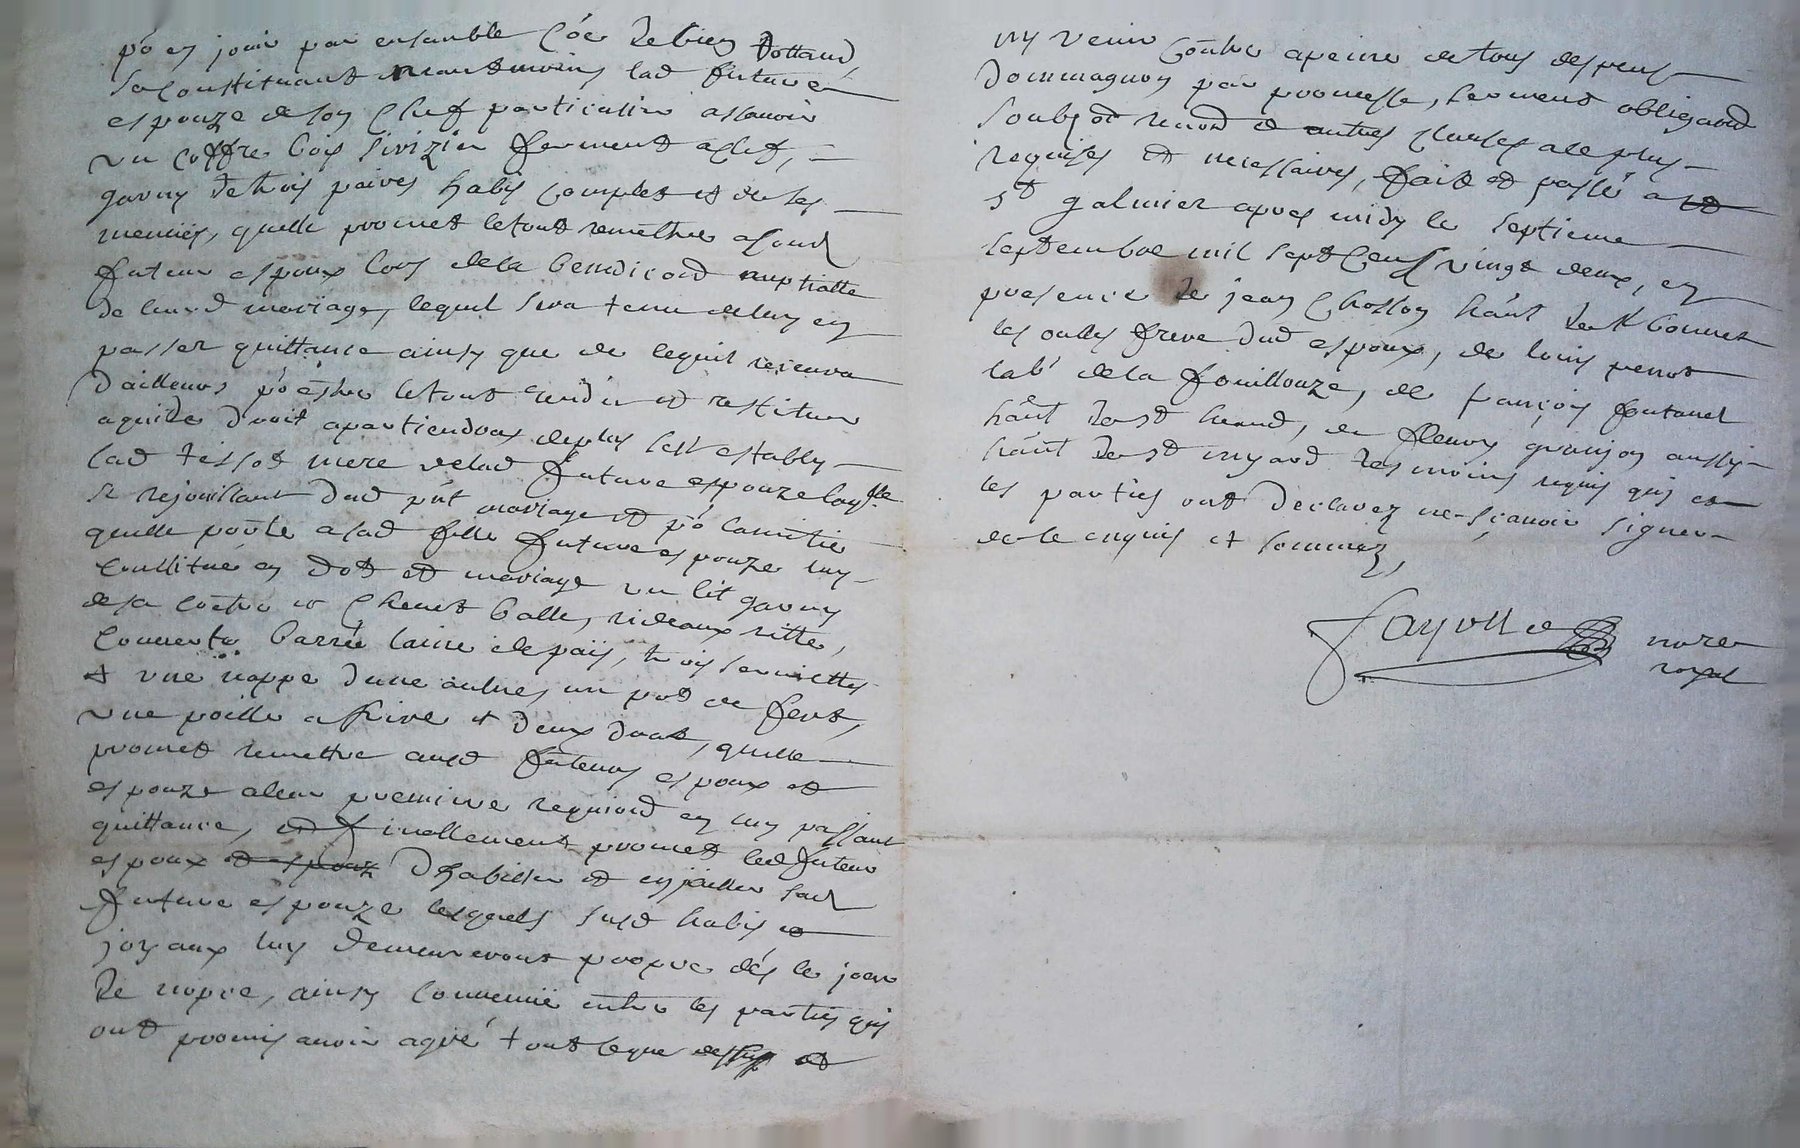 po en jouir par ensemble coe de bien dottaux
se constituant neantmoins lad future
espouze de son chef particulier assavoir
un coffre bois serizier ferment a clef,
garny de trois paires habis complet et de ses
menues, quelle promet le tout remettre a sond
futeur espoux lors de la benedicon nuptialle
de leurd mariage, lequel sera tenu de luy en
passer quittance ainsy que de lequil recevra
dailleurs po estre le tout rendu et restitue
a qui de droit apartiendra de plus sest estably
lad tissot mere de lad future espouze laqlle
se rejouissant dud pnt mariage et po lamitie
quelle porte a sad fille future espouze luy
constitue en dot et mariage un lit garny
de sa coetre et chevet balle, rideaux ritte,
couverte barrée laine de païs, trois serviettes
et une nappe dune aulnes, un pot de fert,
une poille a frire et deux draps, quelle
promet remettre ausd futeurs espoux et
espouze a leur premiere requison en luy passant
quittance, et finallement promet led futeur
espoux et espouz dhabiller et enjoiller sad
future espouze lesquels susd habis et
joyaux luy demeureront propre dés le jour
de nopce, ainsy convenüe entre les parties qui
ont promis avoir agrée tout le que dessus et
ny venir contre a peine de tous despens
dommagnes par promesse, serment obligaon
soubzon renon et autres clauses a ce plus
requises et necessaires, fait et passé a et
st galmier apres midy le septieme
septembre mil sept cens vingt deux, en
presence de jean chosson hânt de st bonnet
les oulles frere dud espoux, de louis perrot
labr de la fouillouze, de françois fontanel
hânt de st heand, de fleury granjon aussy
hânt de st myard tesmoins requis qui et
les parties ont declarez ne sçavoir signer
de ce enquis et sommez,
Fayolle nore
royal